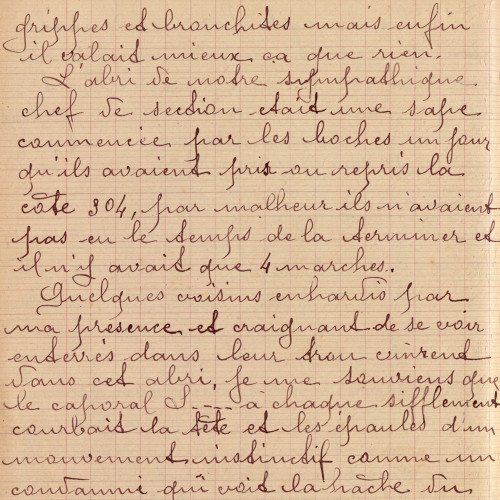 grippes et bronchites mais enfin
il valait mieux ça que rien.
L'abri de notre sympathique
chef de section était une sape
commencée par les boches un jour
qu'ils avaient pris ou repris la
côte 304, par malheur ils n'avaient
pas eu le temps de la terminer et
il n'y avait que 4 marches.
Quelques voisins enhardis par
ma présence et craignant de se voir
enterrés dans leur trou vinrent
dans cet abri, je me souviens que
le caporal S____ à chaque sifflement
courbait la tête et les épaules d'un
mouvement instinctif comme un
condamné qui voit la hâche du